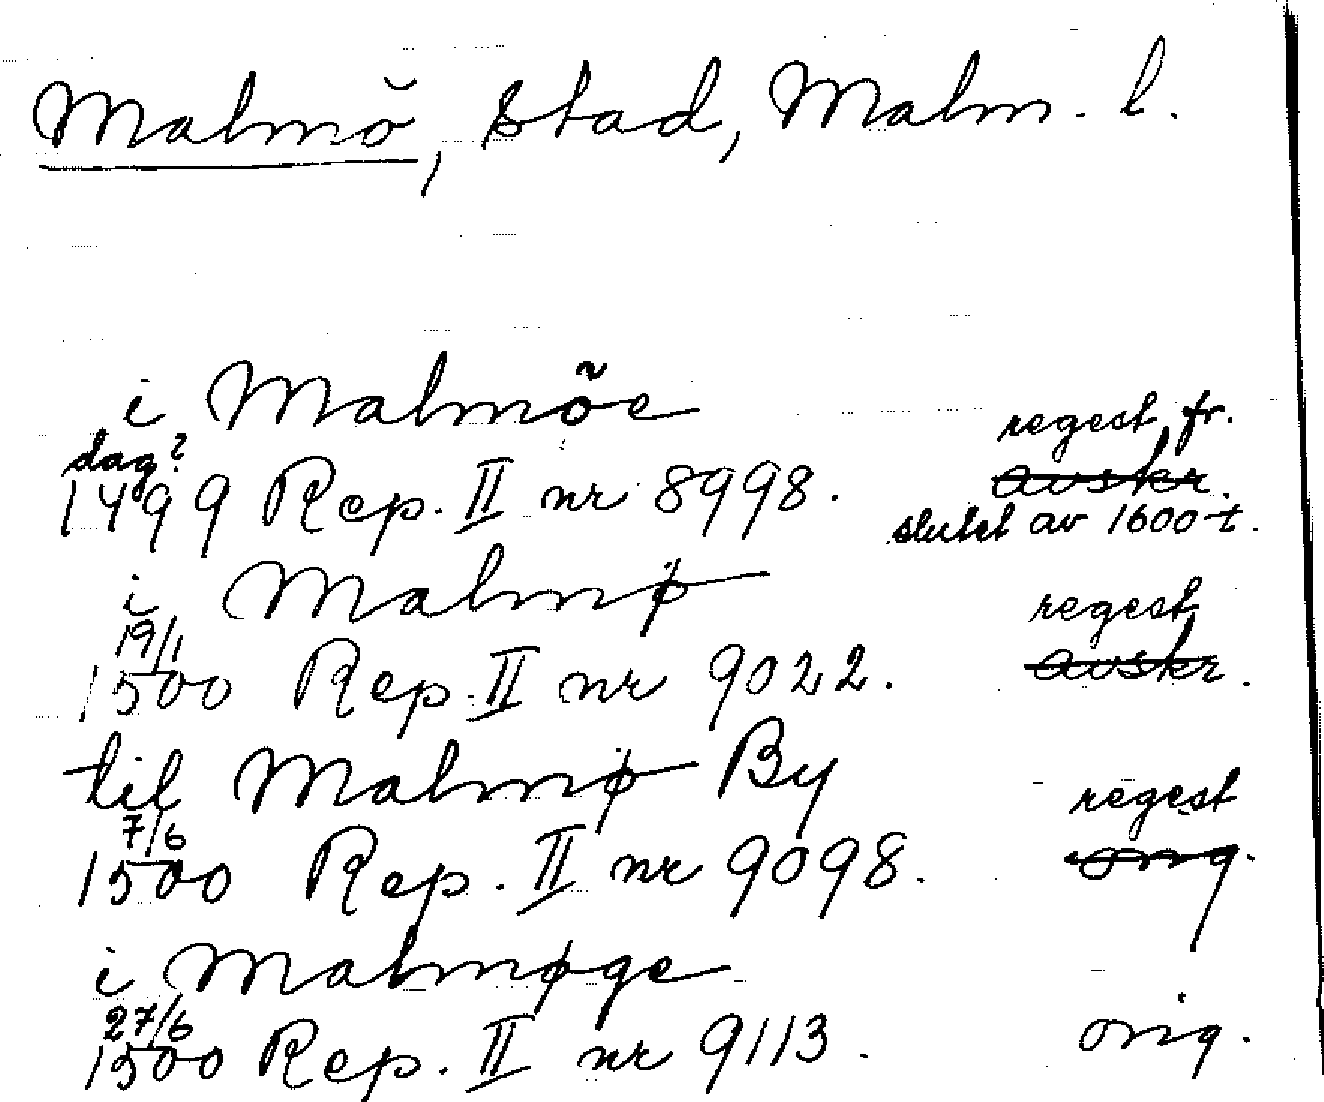 Malmö, stad, Malm. l.
i Malmöe
dag? regest fr.
1499 Rep. II nr 8998. avskr.
slutet av 1600-t.
i Malmø regest
19/1
1500 Rep. II nr 9022. avskr.
til Malmø By regest
7/6
1500 Rep. II nr 9098. orig.
i Malmøge
27/6
1500 Rep. II nr 9113. orig.